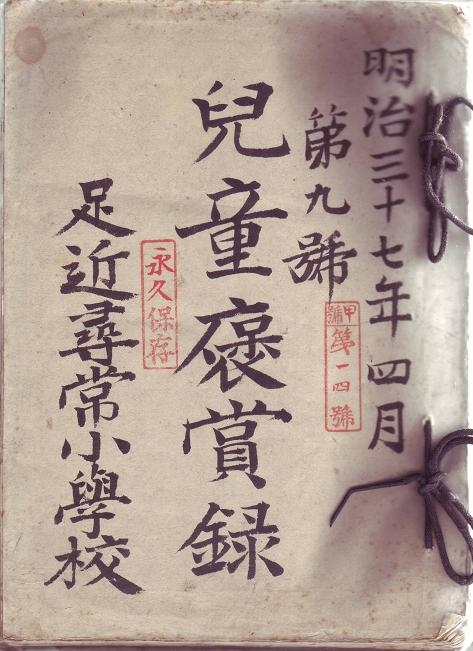 明治三十七年四月
第九號
甲號
第一四號
兒童褒賞録
永久保存
足近尋常小學校